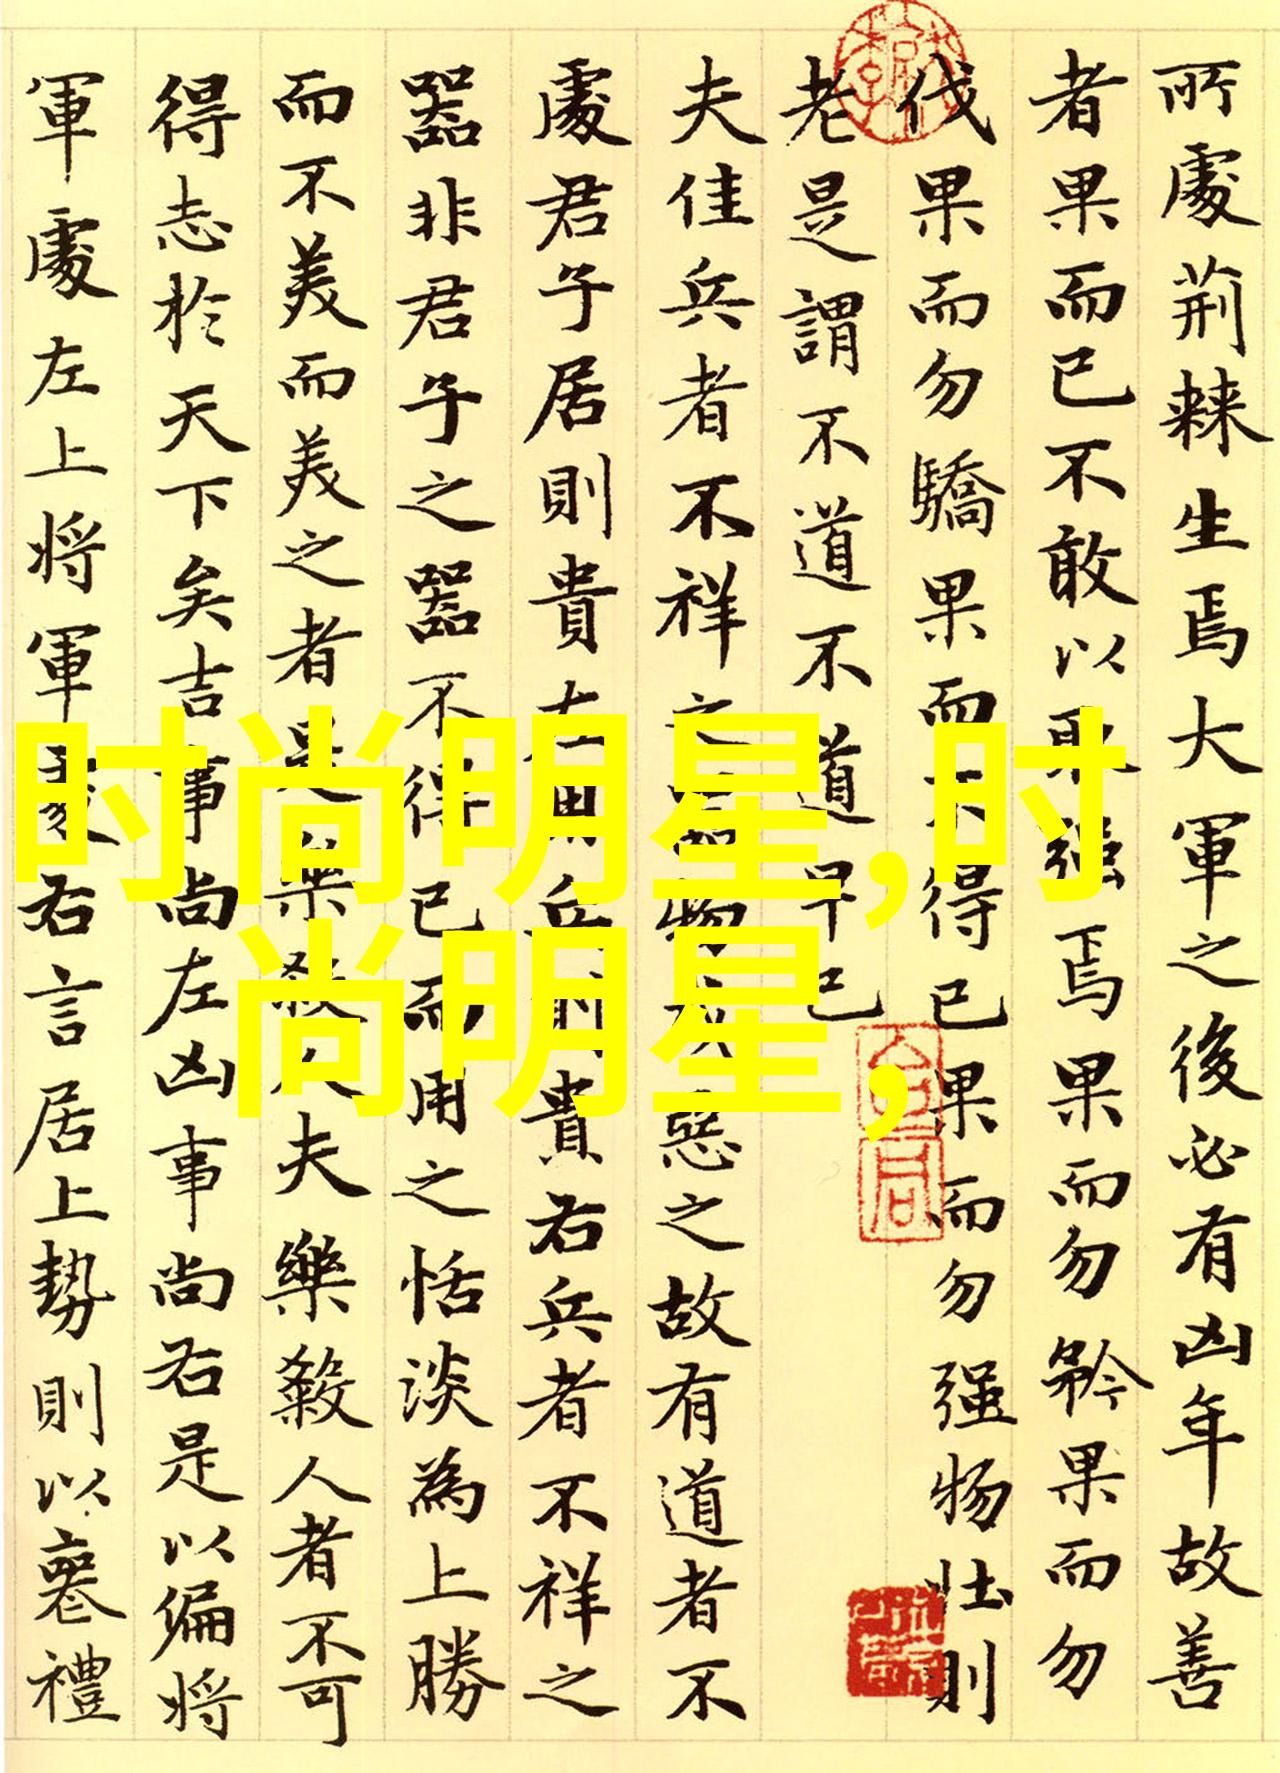 所處荊棘生焉大軍之後必有凶年故善
者果而已不敢以取强焉果而勿矜果而勿
伐果而勿驕果而不得已果而勿强物壯則
老是謂不道不道早已
夫佳兵者不祥之器物或惡之故有道者不
處君子居則貴左用兵則貴右兵者不祥之
器非君子之器不得已而用之恬淡為上勝
而不美而美之者是樂殺人夫樂殺人者不可
得志於天下矣吉事尚左凶事尚右是以偏將
軍處左上將軍處右言居上勢則以喪禮
时尚明星,时
尚明星,